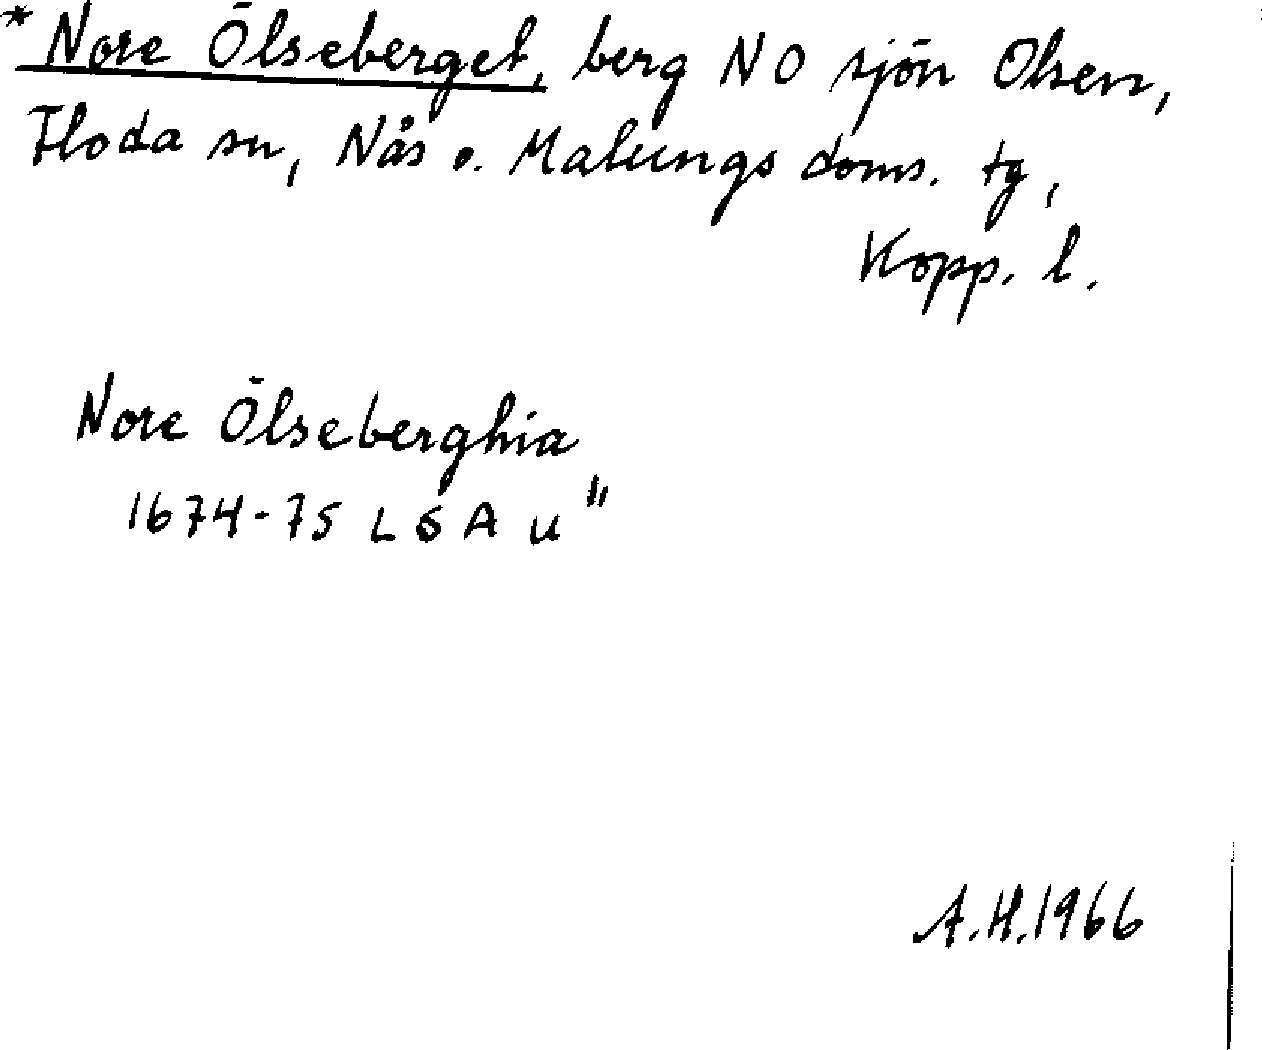 *Nore Ölseberget, berg NO sjön Olsen,
Floda sn, Nås o. Malungs doms. tg,
Kopp. l.
Nore Ölseberghia
1674-75 LSA u"
A.H.1966